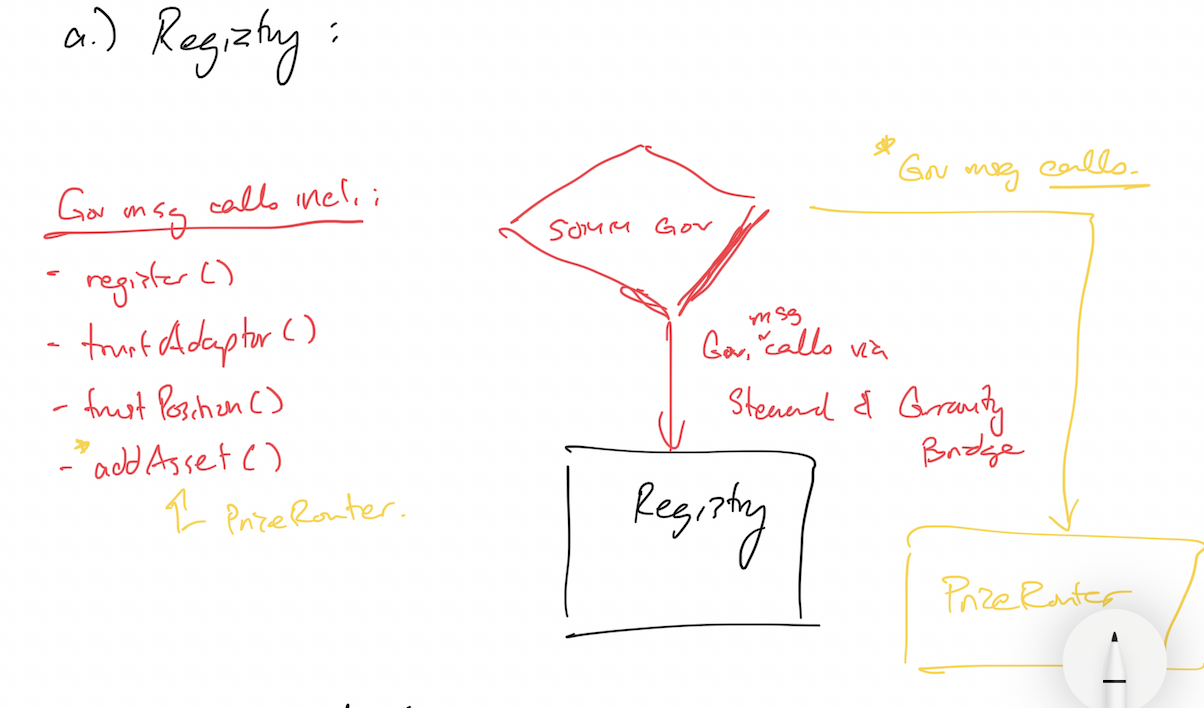 a.) Registry :
Gov msg calls incl. :
- register()
- trustAdaptor()
- trustPosition()
- *addAsset()
PriceRouter.
SOMM GOV
msg
Gov, calls via
Steward & Gravity
Bridge
Registry
* Gov msg calls.
PriceRouter